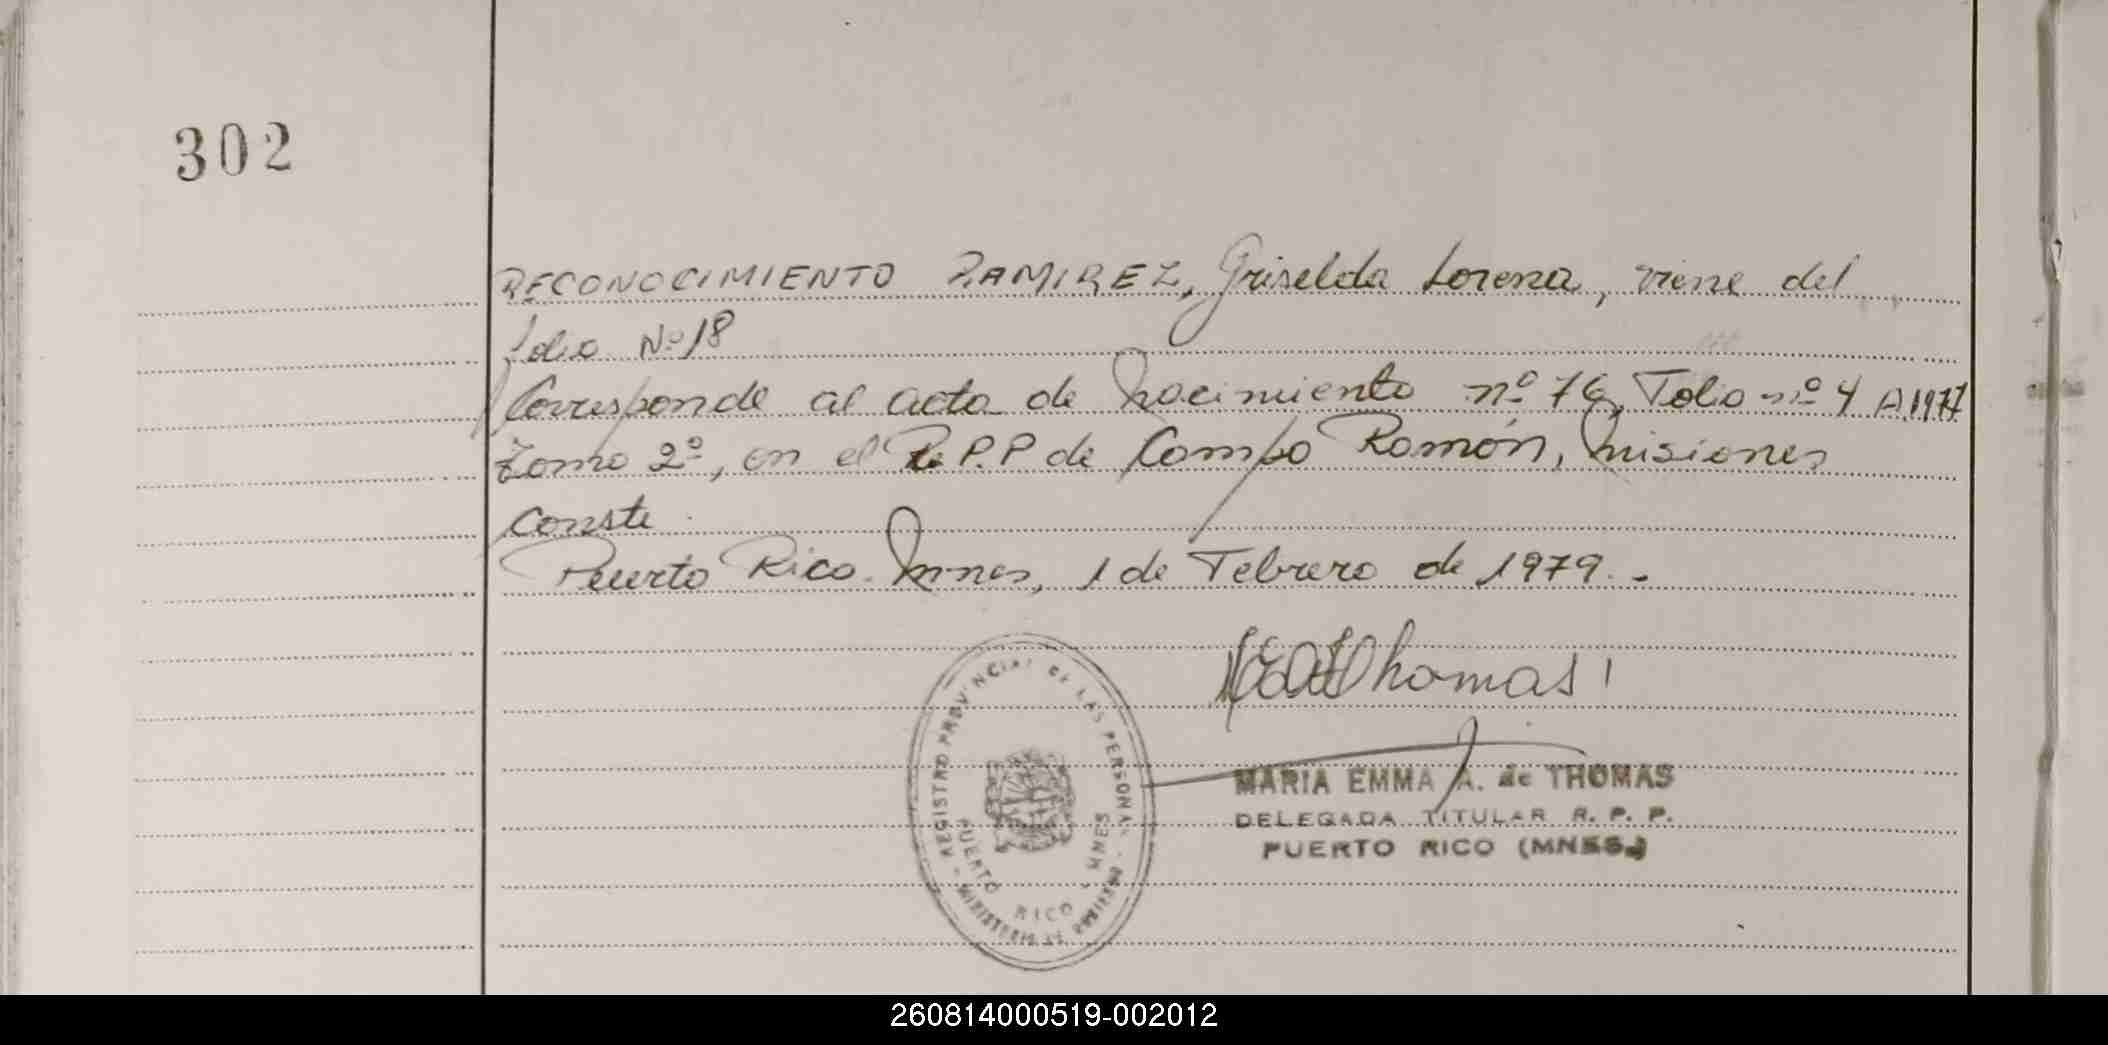 302
RECONOCIMIENTO RAMIREZ, Griselda Lorena, viene del
folio Nº 18
Corresponde al acta de Nacimiento nº 76, Folio nº 4 A 1977
Tomo 2º, en el R.P.P de Campo Ramón, Misiones
Conste.
Puerto Rico. Mnes, 1 de Febrero de 1979.-
Thomas
MARIA EMMA A. de THOMAS
DELEGADA TITULAR R. P. P.
PUERTO RICO (MNES.)
REGISTRO PROVINCIAL DE LAS PERSONAS
PUERTO RICO, MNES
260814000519-002012